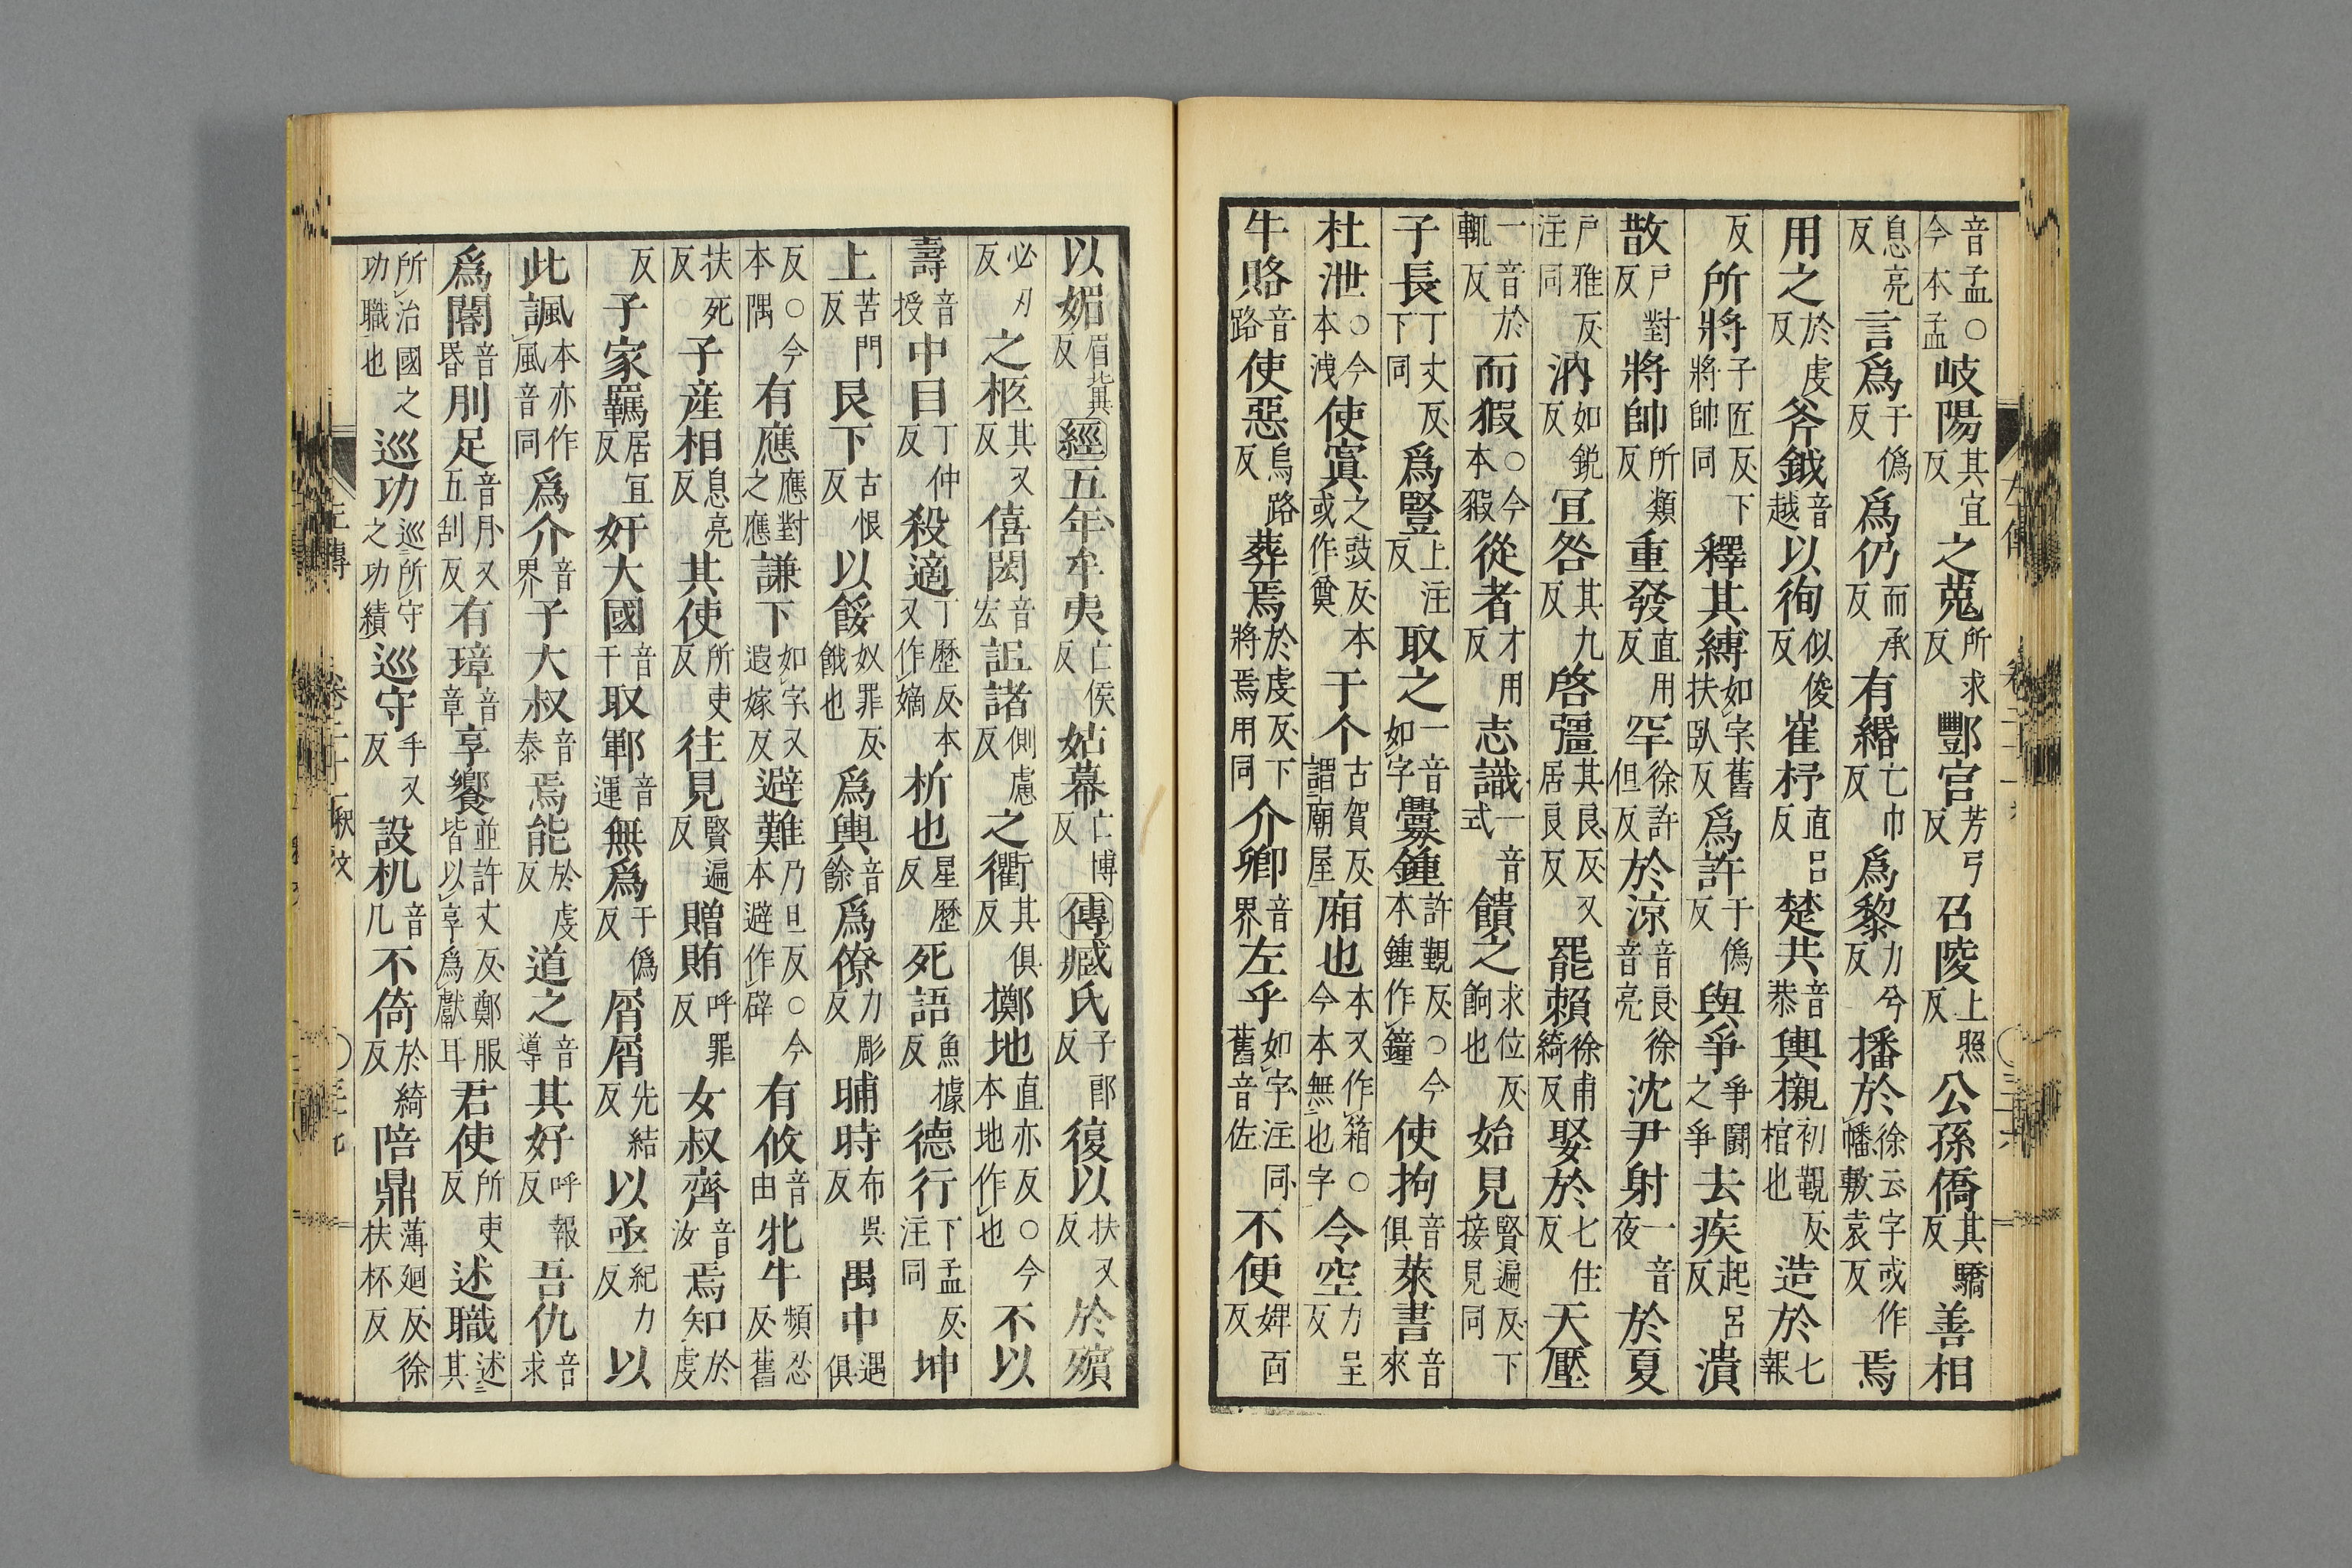 音孟○今本孟岐陽其宜反之蒐所求反酆宮芳弓反召陵上照反公孫僑其驕反善相
息亮反言爲于僞反爲仍而承反有緡亡巾反爲黎力兮反播於徐云字或作幡敷袁反焉
用之於虔反斧鉞音越以徇似俊反崔杼直呂反楚共音恭輿櫬初覲反棺也造於七報
反所將子匠反下將帥同釋其縛如字舊扶臥反爲許于僞反與爭爭鬬之爭去疾起呂反潰
散戶對反將帥所類反重發直用反罕徐許但反於涼音良徐音亮沈尹射一音夜於夏
戶雅反注同汭如銳反宜咎其九反啓彊其良反又居良反罷賴徐甫綺反娶於七住反天壓
一音於輒反而猳○今本豭從者才用反志識一音式饋之求位反餉也始見賢遍反下接見同
子長丁丈反下同爲豎上注反取之一音如字釁鍾許覲反○今本鍾作鐘使拘音俱萊書音來
杜泄○今本洩使寘之豉反本或作奠于个古賀反謂廟屋廂也本又作箱○今本無也字令空力呈反
牛賂音路使惡烏路反葬焉於虔反下將焉用同介卿音界左乎如字注同舊音佐不便婢面反
以媚眉冀反經五年牟夷亡侯反姑幕亡博反傳臧氏子郎反復以扶又反於殯
必刃反之柩其又反僖閎音宏詛諸側慮反之衢其俱反擲地直亦反○今本地作也不以
壽音授中目丁仲反殺適丁歷反本又作嫡析也星歷反死語魚據反德行下孟反注同坤
上苦門反艮下古恨反以餒奴罪反餓也爲輿音餘爲僚力彫反晡時布吳反禺中遇俱
反○今本隅有應應對之應謙下如字又遐嫁反避難乃旦反○今本避作辟有攸音由牝牛頻忍反舊
扶死反○子產相息亮反其使所吏反往見賢遍反贈賄呼罪反女叔齊音汝焉知於虔
反子家羈居宜反奸大國音干取鄆音運無爲于僞反屑屑先結反以亟紀力反以
此諷本亦作風音同爲介音界子大叔音泰焉能於虔反道之音導其好呼報反吾仇音求
爲閽音昏刖足音月又五刮反有璋音章享饗並許丈反鄭服皆以享爲獻耳君使所吏反述職述其
所治國之功職也巡功巡所守之功績巡守手又反設机音几不倚於綺反陪鼎薄廻反徐扶杯反